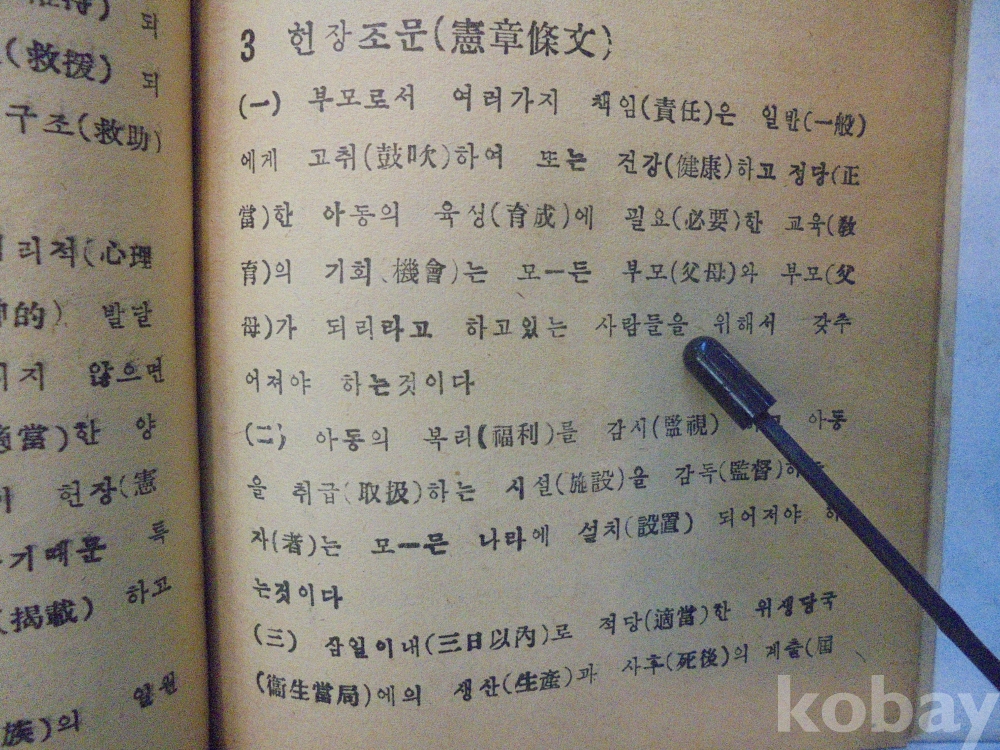 되
(救援) 되
구조(救助)
리적(心理
的) 발달
지 않으면
適當)한 양
헌장(憲
기때문 특
(揭載) 하고
일원
族)의
3 헌장조문(憲章條文)
(一) 부모로서 여러가지 책임(責任)은 일반(一般)
에게 고취(鼓吹)하여 또는 건강(健康)하고 정당(正
當)한 아동의 육성(育成)에 필요(必要)한 교육(敎
育)의 기회(機會)는 모ー든 부모(父母)와 부모(父
母)가 되리라고 하고있는 사람들을 위해서 갖추
어져야 하는것이다
(二) 아동의 복리(福利)를 감시(監視) 아동
을 취급(取扱)하는 시설(施設)을 감독(監督)하
자(者)는 모ー든 나라에 설치(設置) 되어저야 하
는것이다
(三) 삼일이내(三日以內)로 적당(適當)한 위생당국
(衞生當局)에의 생산(生產)과 사후(死後)의 계출(屆
kobay